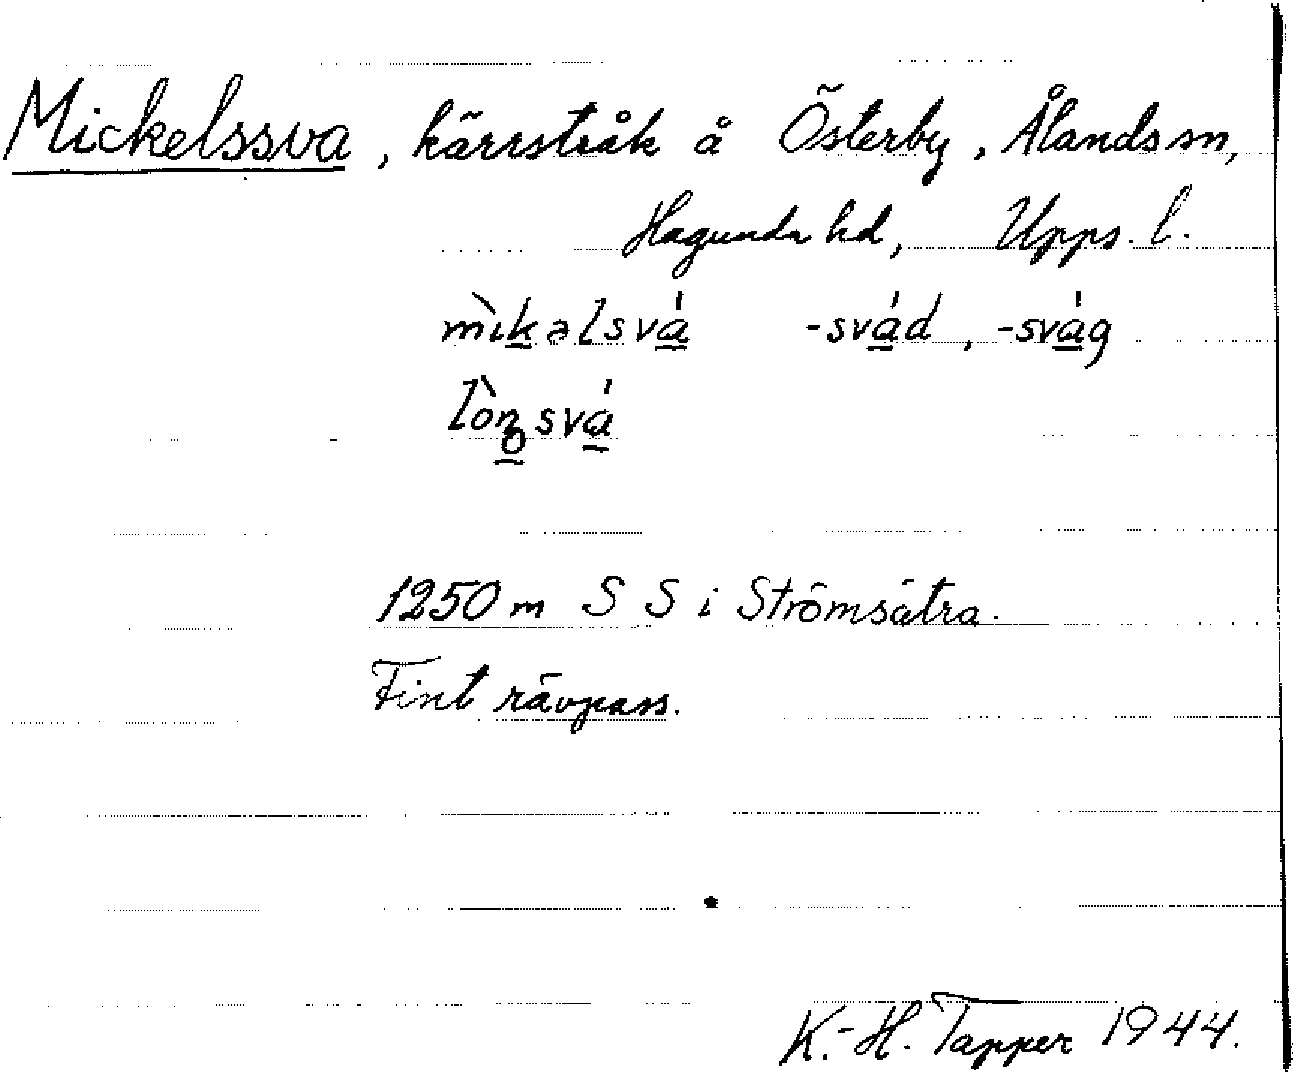 Mickelssva, kärrstråk å Österby, Ålands sn,
Hagunda hd, Upps. l.
mìkəlsvá -svád, -svág
lòn̥svá
1250 m S S i Strömsätra.
Fint rävpass.
K.-H. Tapper 1944.